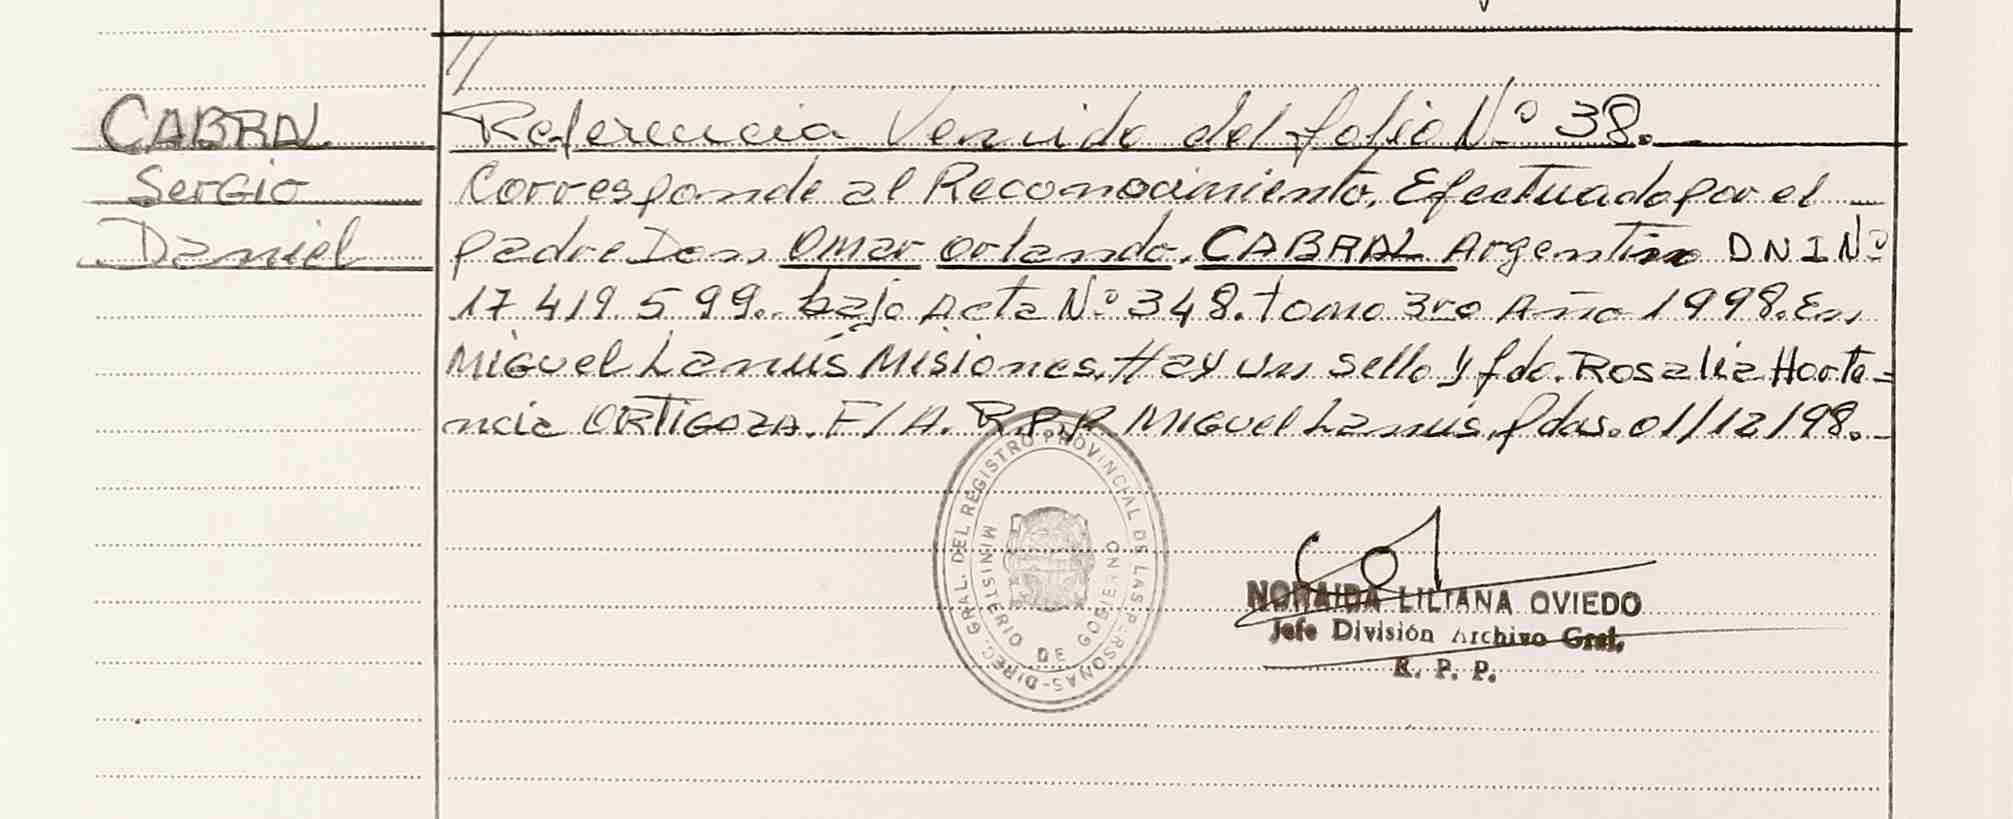 //
CABRAL
Sergio
Daniel
Referencia Venido del folio Nº 38.
Corresponde al Reconocimiento, Efectuado por el
padre Don Omar Orlando, CABRAL Argentino DNI Nº
17 419 599. bajo Acta Nº 348. tomo 3ro Año 1998. En
Miguel Lanús Misiones. Hay un sello y fdo. Rosalia Horte=
ncia ORTIGOZA. E/A. R.P.P. Miguel Lanús, pdas. 01/12/98.-
DIREC. GRAL. DEL REGISTRO PROVINCIAL DE LAS PERSONAS-
MINISTERIO DE GOBIERNO
NORAIDA LILIANA OVIEDO
Jefe División Archivo Gral.
R. P. P.